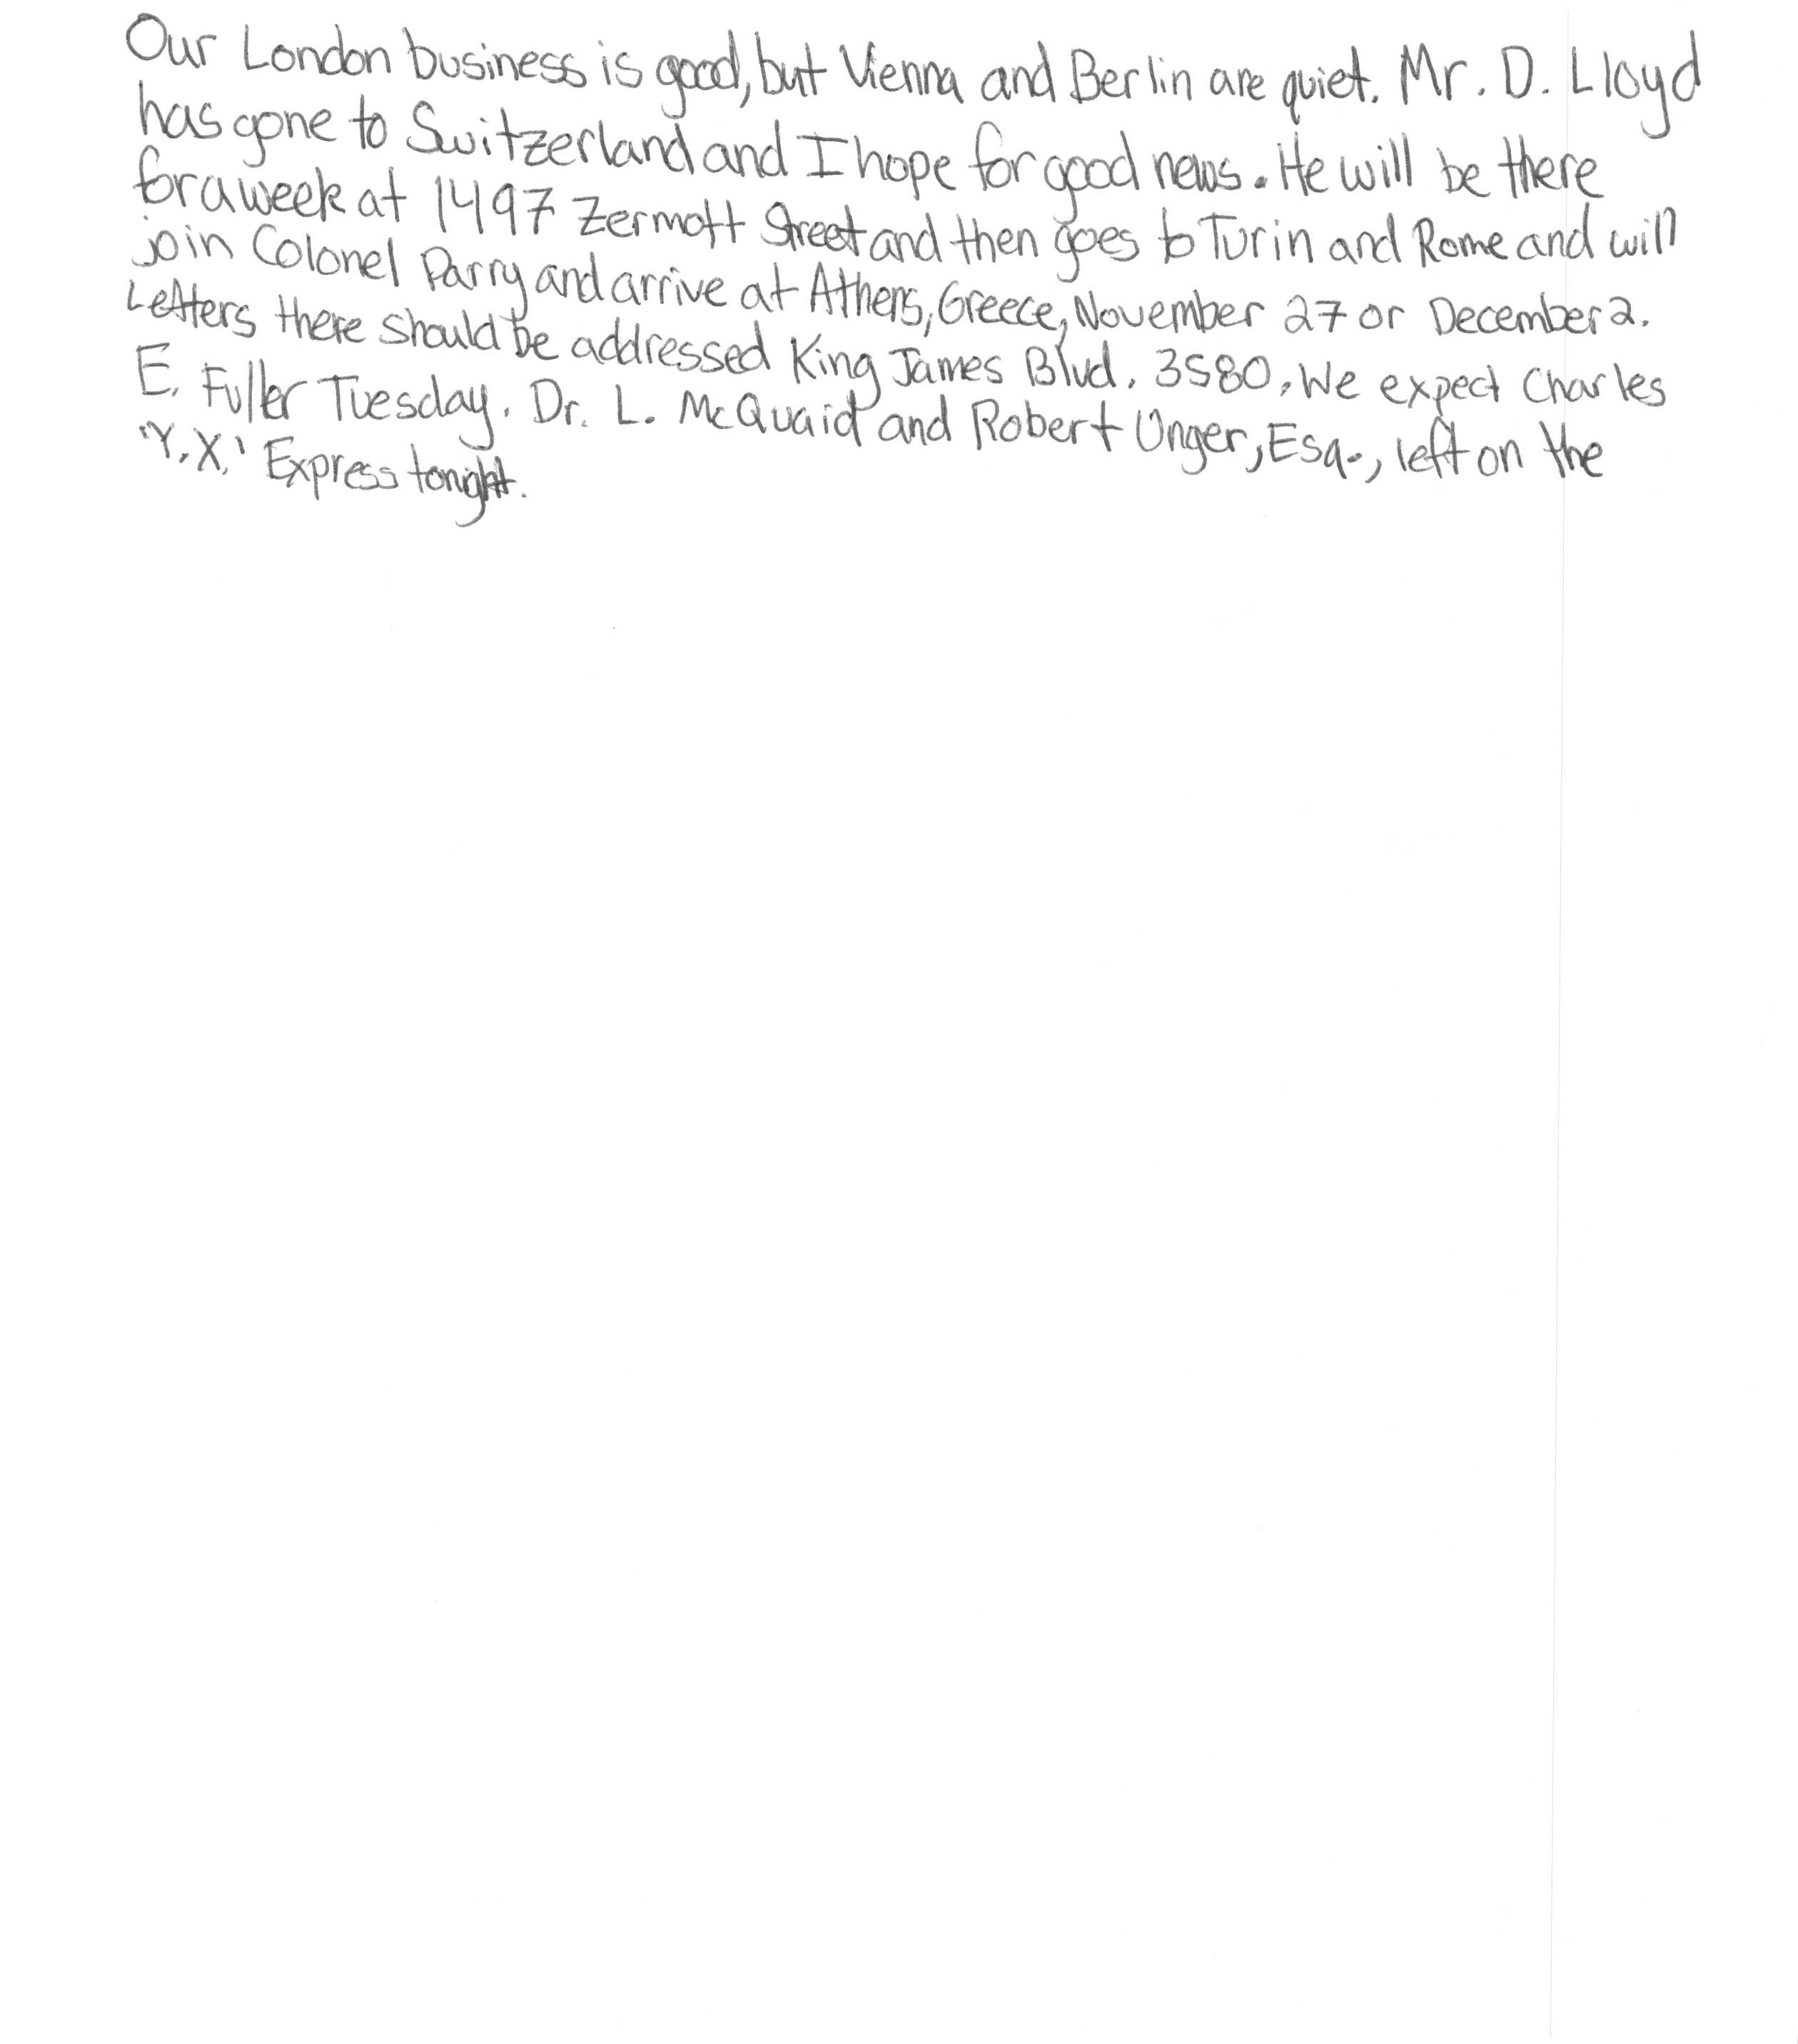 Our London business is good, but Vienna and Berlin are quiet. Mr. D. Lloyd
has gone to Switzerland and I hope for good news. He will be there
for a week at 1497 Zermott Street and then goes to Turin and Rome and will
join Colonel Parry and arrive at Athens, Greece, November 27 or December 2.
Letters there should be addressed King James Blvd. 3580. We expect Charles
E. Fuller Tuesday. Dr. L. McQuaid and Robert Unger, Esq., left on the
'Y.X.' Express tonight.